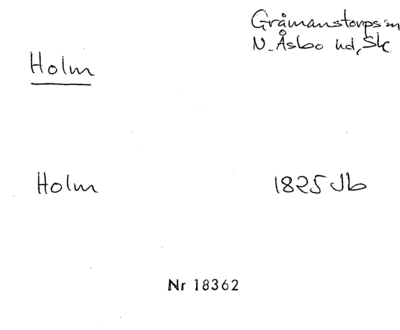 Gråmanstorps sn
N. Åsbo hd, Sk
Holm
Holm 1825 Jb
Nr 18362